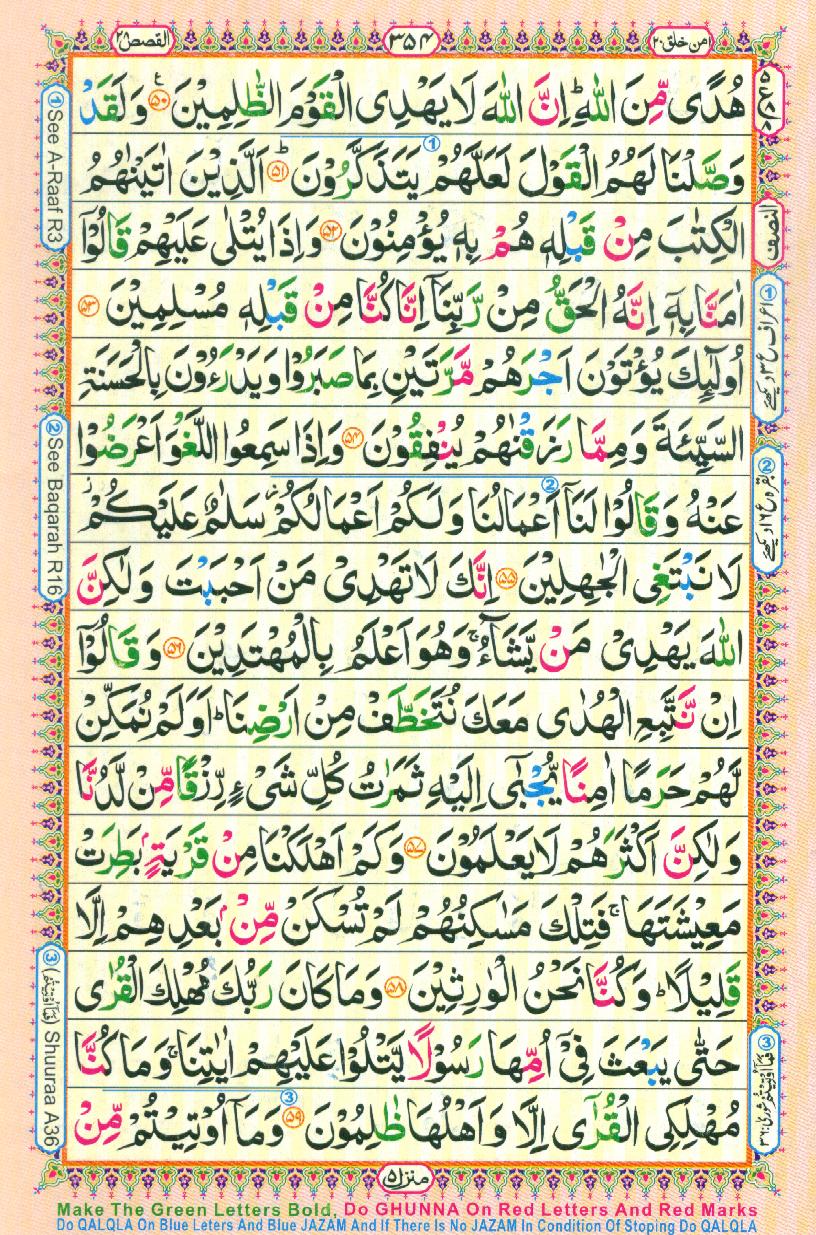 القصص ۲۸
۳۵۴
امن خلق ۲۰
هُدًی مِّنَ اللّٰهِ ؕ اِنَّ اللّٰهَ لَا یَهْدِی الْقَوْمَ الظّٰلِمِیْنَ ۵۰ ع وَ لَقَدْ
وَصَّلْنَا لَهُمُ الْقَوْلَ لَعَلَّهُمْ یَتَذَكَّرُوْنَ ؕ ۵۱ اَلَّذِیْنَ اٰتَیْنٰهُمُ
الْكِتٰبَ مِنْ قَبْلِهٖ هُمْ بِهٖ یُؤْمِنُوْنَ ۵۲ وَ اِذَا یُتْلٰی عَلَیْهِمْ قَالُوْۤا
اٰمَنَّا بِهٖۤ اِنَّهُ الْحَقُّ مِنْ رَّبِّنَاۤ اِنَّا كُنَّا مِنْ قَبْلِهٖ مُسْلِمِیْنَ ۵۳
اُولٰٓىِٕكَ یُؤْتَوْنَ اَجْرَهُمْ مَّرَّتَیْنِ بِمَا صَبَرُوْا وَ یَدْرَءُوْنَ بِالْحَسَنَةِ
السَّیِّئَةَ وَ مِمَّا رَزَقْنٰهُمْ یُنْفِقُوْنَ ۵۴ وَ اِذَا سَمِعُوا اللَّغْوَ اَعْرَضُوْا
عَنْهُ وَ قَالُوْا لَنَاۤ اَعْمَالُنَا وَ لَكُمْ اَعْمَالُكُمْ ؗ سَلٰمٌ عَلَیْكُمْ ؗ
لَا نَبْتَغِی الْجٰهِلِیْنَ ۵۵ اِنَّكَ لَا تَهْدِیْ مَنْ اَحْبَبْتَ وَ لٰكِنَّ
اللّٰهَ یَهْدِیْ مَنْ یَّشَآءُ ۚ وَ هُوَ اَعْلَمُ بِالْمُهْتَدِیْنَ ۵۶ وَ قَالُوْۤا
اِنْ نَّتَّبِعِ الْهُدٰی مَعَكَ نُتَخَطَّفْ مِنْ اَرْضِنَا ؕ اَوَ لَمْ نُمَكِّنْ
لَّهُمْ حَرَمًا اٰمِنًا یُّجْبٰۤی اِلَیْهِ ثَمَرٰتُ كُلِّ شَیْءٍ رِّزْقًا مِّنْ لَّدُنَّا
وَ لٰكِنَّ اَكْثَرَهُمْ لَا یَعْلَمُوْنَ ۵۷ وَ كَمْ اَهْلَكْنَا مِنْ قَرْیَةٍۭ بَطِرَتْ
مَعِیْشَتَهَا ۚ فَتِلْكَ مَسٰكِنُهُمْ لَمْ تُسْكَنْ مِّنْۢ بَعْدِهِمْ اِلَّا
قَلِیْلًا ؕ وَ كُنَّا نَحْنُ الْوٰرِثِیْنَ ۵۸ وَ مَا كَانَ رَبُّكَ مُهْلِكَ الْقُرٰی
حَتّٰی یَبْعَثَ فِیْۤ اُمِّهَا رَسُوْلًا یَّتْلُوْا عَلَیْهِمْ اٰیٰتِنَا ۚ وَ مَا كُنَّا
مُهْلِكِی الْقُرٰۤی اِلَّا وَ اَهْلُهَا ظٰلِمُوْنَ ۵۹ وَ مَاۤ اُوْتِیْتُمْ مِّنْ
النصف
① اعراف ع ۳ دیکھئے
② بقرہ ع ۱۶ دیکھئے
① See A-Raaf R3
② See Baqarah R16
③ Shuuraa A36
منزل ۵
Make The Green Letters Bold, Do GHUNNA On Red Letters And Red Marks
Do QALQLA On Blue Leters And Blue JAZAM And If There Is No JAZAM In Condition Of Stoping Do QALQLA